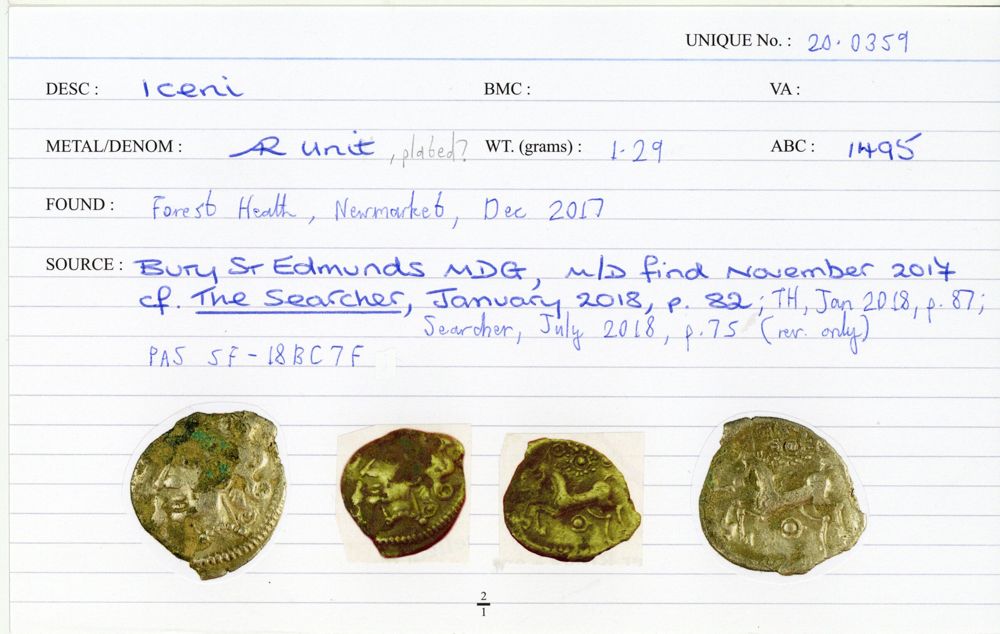 UNIQUE No. : 20.0359
DESC : Iceni BMC : VA :
METAL/DENOM : AR unit, plated? WT. (grams) : 1.29 ABC : 1495
FOUND : Forest Heath, Newmarket, Dec 2017
SOURCE : Bury St Edmunds MDG, M/D find November 2017
cf. The Searcher, January 2018, p. 82; TH, Jan 2018, p. 87;
Searcher, July 2018, p. 75 (rev. only)
PAS SF-18BC7F
2
1